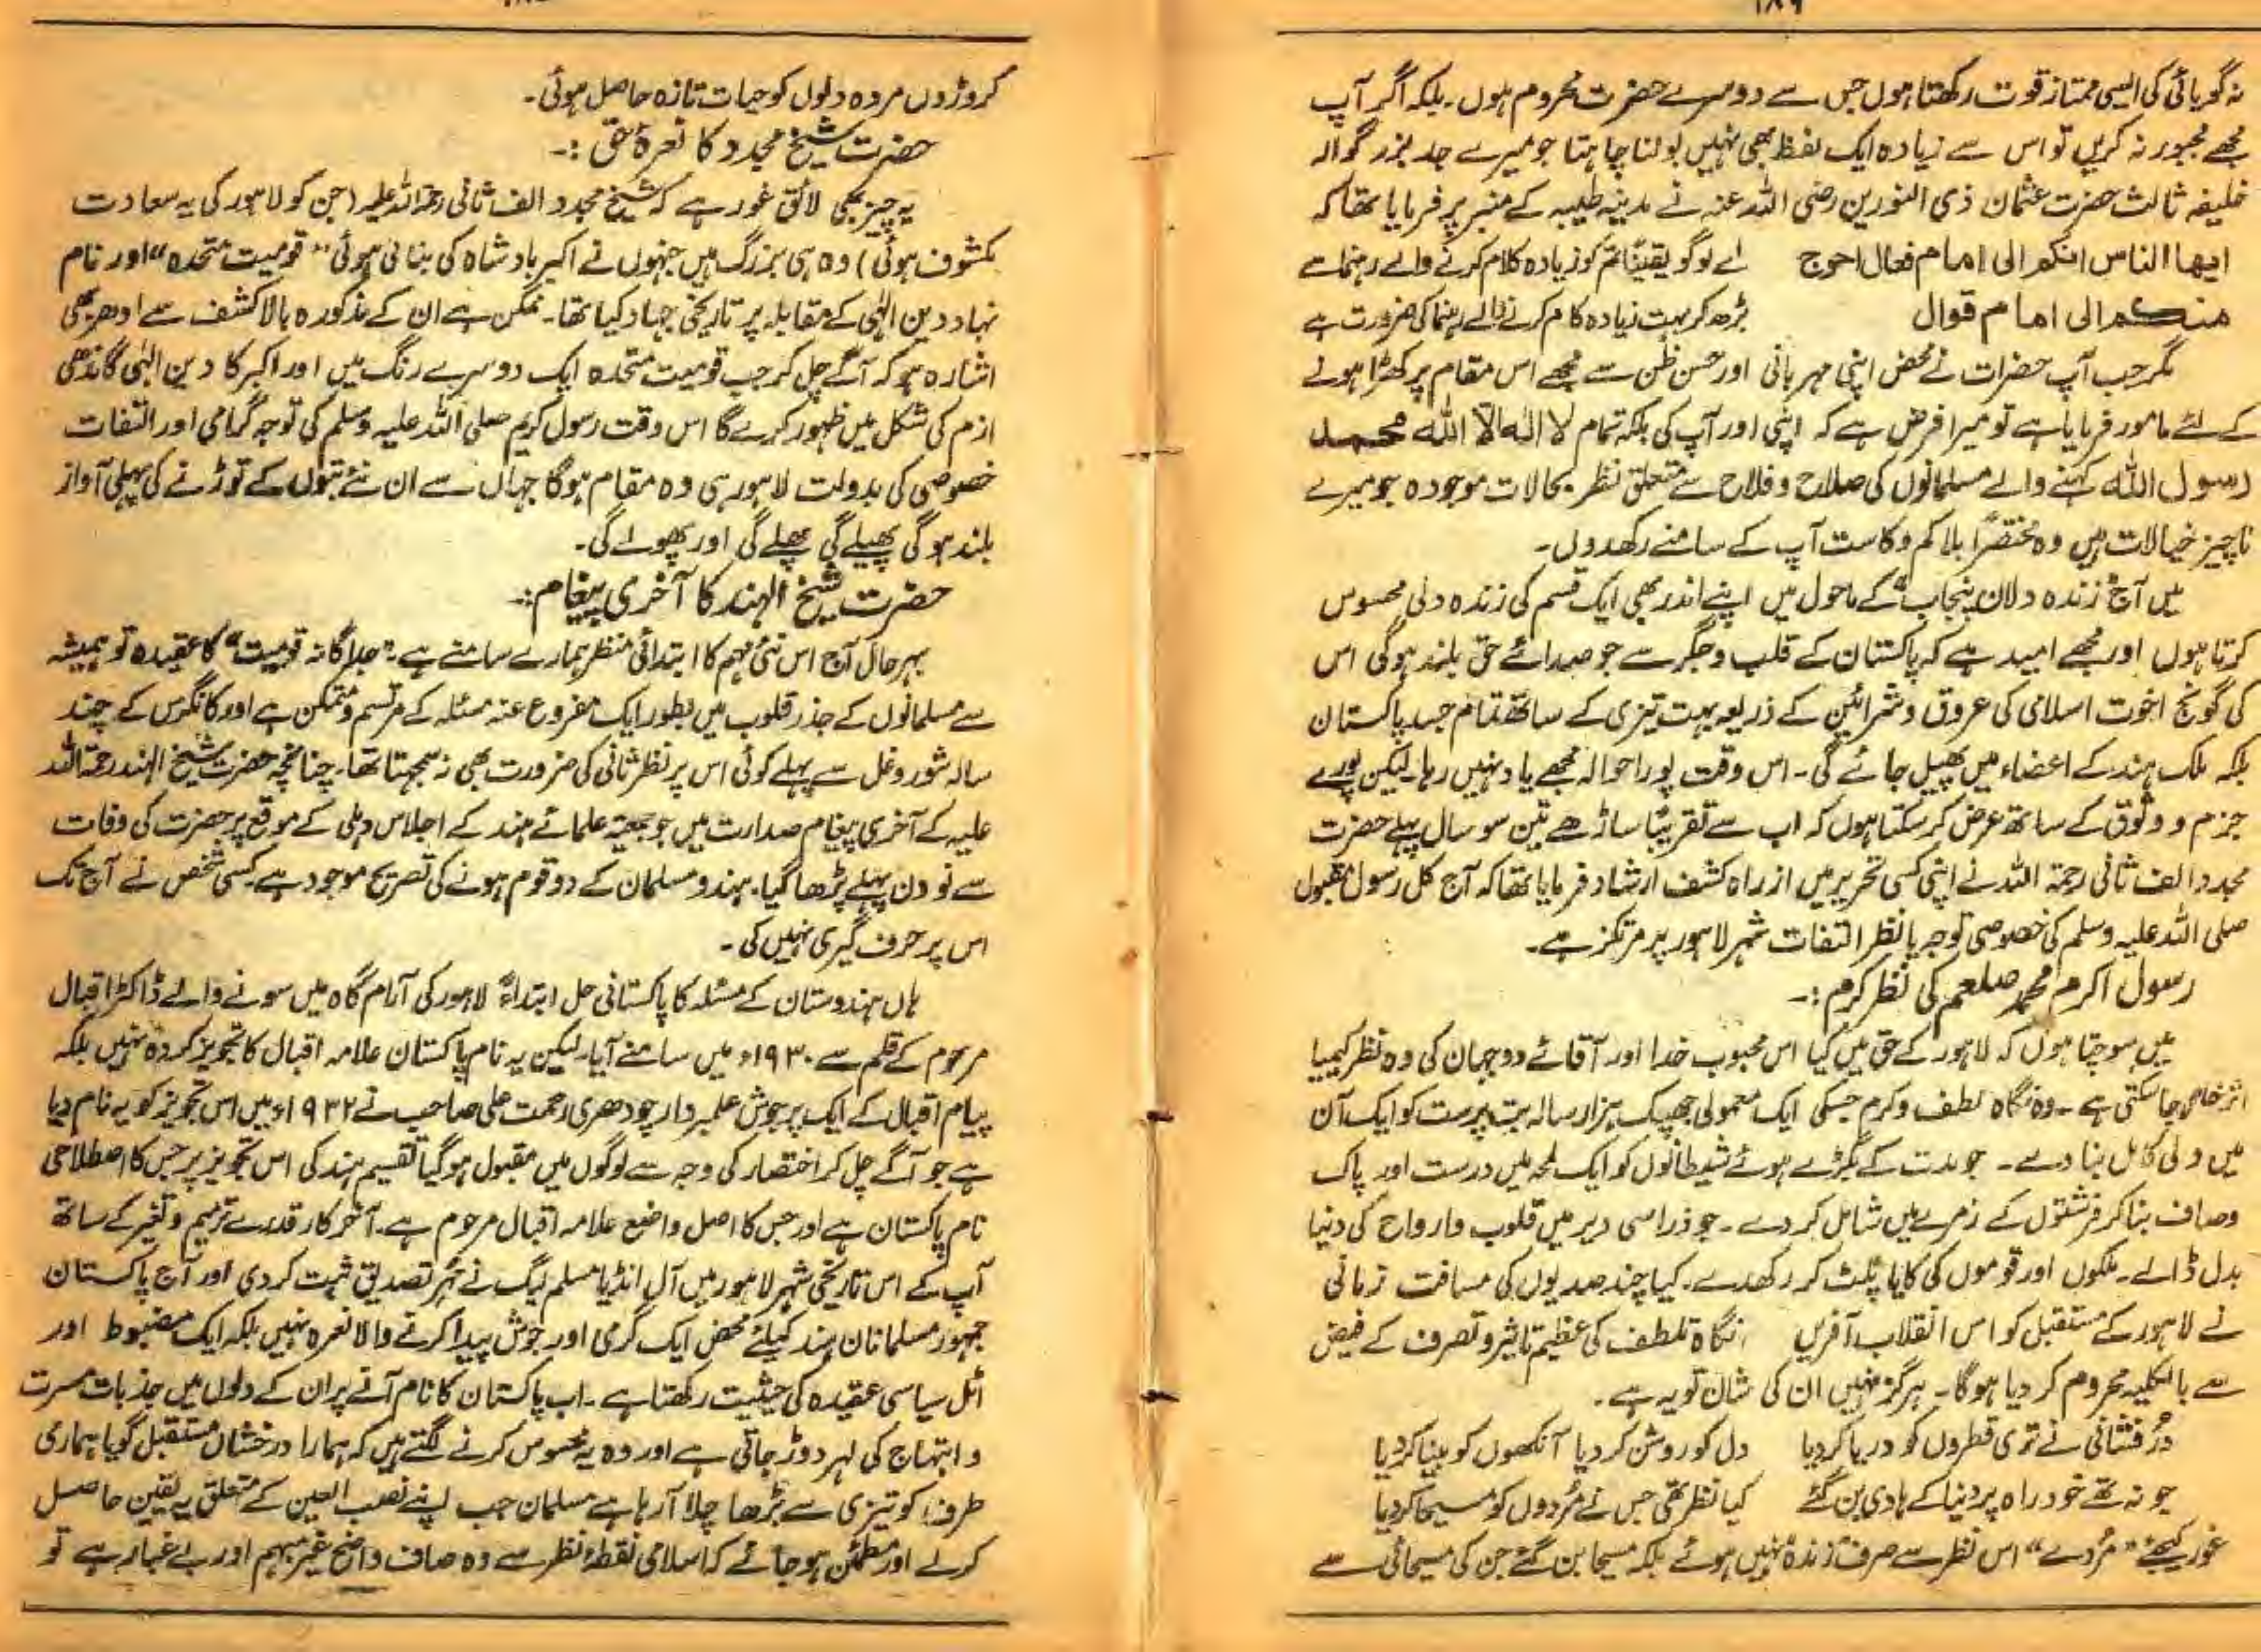 ۱۸۹
نہ گویائی کی ایسی ممتاز قوت رکھتا ہوں جس سے دوسرے حضرت محروم ہوں۔ بلکہ اگر آپ
مجھے مجبور نہ کریں تو اس سے زیادہ ایک لفظ بھی نہیں بولنا چاہتا جو میرے جد بزرگوار
خلیفہ ثالث حضرت عثمان ذی النورین رضی اللہ عنہ نے مدینہ طیبہ کے منبر پر فرمایا تھا کہ
ایھا الناس انکم الی امام فعال احوج اے لوگو یقیناً تم کو زیادہ کلام کرنے والے رہنما سے
منکم الی امام قوال بڑھ کر بہت زیادہ کام کرنے والے رہنما کی ضرورت ہے
مگر جب آپ حضرات نے محض اپنی مہربانی اور حسن ظن سے مجھے اس مقام پر کھڑا ہونے
کے لئے مامور فرمایا ہے تو میرا فرض ہے کہ اپنی اور آپ کی بلکہ تمام لا الٰہ الّا اللہ محمد
رسول اللہ کہنے والے مسلمانوں کی صلاح و فلاح سے متعلق نظر بحالات موجودہ جو میرے
ناچیز خیالات ہیں وہ مختصراً بلا کم و کاست آپ کے سامنے رکھدوں۔
میں آج "زندہ دلان پنجاب" کے ماحول میں اپنے اندر بھی ایک قسم کی زندہ دلی محسوس
کرتا ہوں اور مجھے امید ہے کہ پاکستان کے قلب و جگر سے جو صدائے حق بلند ہوگی اس
کی گونج اخوت اسلامی کی عروق و شرائین کے ذریعہ بہت تیزی کے ساتھ تمام جسد پاکستان
بلکہ ملک ہند کے اعضاء میں پھیل جائے گی۔ اس وقت پورا حوالہ مجھے یاد نہیں رہا۔ لیکن پورے
جزم و وثوق کے ساتھ عرض کر سکتا ہوں کہ اب سے تقریباً ساڑھے تین سو سال پہلے حضرت
مجدد الف ثانی رحمۃ اللہ نے اپنی کسی تحریر میں از راہ کشف ارشاد فرمایا تھا کہ آج کل رسول مقبول
صلی اللہ علیہ وسلم کی خصوصی توجہ یا نظر التفات شہر لاہور پر مرتکز ہے۔
رسول اکرم محمد صلعم کی نظر کرم :۔
میں سوچتا ہوں کہ لاہور کے حق میں کیا اس محبوب خدا اور آقائے دوجہان کی وہ نظر کیمیا
اثر خالی جا سکتی ہے۔ وہ نگاہ لطف و کرم جسکی ایک معمولی جھپک ہزار سالہ بت پرست کو ایک آن
میں ولی کامل بنا دے۔ جو مدت کے بگڑے ہوئے شیطانوں کو ایک لمحہ میں درست اور پاک
وصاف بنا کر فرشتوں کے زمرے میں شامل کر دے۔ جو ذرا سی دیر میں قلوب و ارواح کی دنیا
بدل ڈالے۔ ملکوں اور قوموں کی کایا پلٹ کر رکھدے۔ کیا چند صدیوں کی مسافت زمانی
نے لاہور کے مستقبل کو اس انقلاب آفریں نگاہ تلطف کی عظیم تاثیر و تصرف کے فیض
سے بالکلیہ محروم کر دیا ہوگا۔ ہرگز نہیں ان کی شان تو یہ ہے۔
دُر فشانی نے تری قطروں کو دریا کر دیا دل کو روشن کر دیا آنکھوں کو بینا کر دیا
جو نہ تھے خود راہ پر دنیا کے ہادی بن گئے کیا نظر تھی جس نے مُردوں کو مسیحا کر دیا
غور کیجئے "مُردے" اس نظر سے صرف زندہ نہیں ہوئے بلکہ مسیحا بن گئے جن کی مسیحائی سے
کروڑوں مردہ دلوں کو حیات تازہ حاصل ہوئی۔
حضرت شیخ مجدد کا نعرۂ حق :۔
یہ چیز بھی لائق غور ہے کہ شیخ مجدد الف ثانی رحمۃ اللہ علیہ (جن کو لاہور کی یہ سعادت
مکشوف ہوئی) وہ ہی بزرگ ہیں جنہوں نے اکبر بادشاہ کی بنائی ہوئی "قومیت متحدہ" اور نام
نہاد دین الٰہی کے مقابلہ پر تاریخی جہاد کیا تھا۔ ممکن ہے ان کے مذکورہ بالا کشف سے ادھر بھی
اشارہ ہو کہ آگے چل کر جب قومیت متحدہ ایک دوسرے رنگ میں اور اکبر کا دین الٰہی گاندھی
ازم کی شکل میں ظہور کرے گا اس وقت رسول کریم صلی اللہ علیہ وسلم کی توجہ گرامی اور التفات
خصوصی کی بدولت لاہور ہی وہ مقام ہوگا جہاں سے ان نئے بتوں کے توڑنے کی پہلی آواز
بلند ہوگی پھیلے گی پھلے گی اور پھولے گی۔
حضرت شیخ الہند کا آخری پیغام:۔
بہرحال آج اس نئی مہم کا ابتدائی منظر ہمارے سامنے ہے۔ "جداگانہ قومیت" کا عقیدہ تو ہمیشہ
سے مسلمانوں کے جذر قلوب میں بطور ایک مفروغ عنہ مسئلہ کے مرتسم و متمکن ہے اور کانگرس کے چند
سالہ شور و غل سے پہلے کوئی اس پر نظر ثانی کی ضرورت بھی نہ سمجھتا تھا۔ چنانچہ حضرت شیخ الہند رحمۃ اللہ
علیہ کے آخری پیغام صدارت میں جو جمعیۃ علمائے ہند کے اجلاس دہلی کے موقع پر حضرت کی وفات
سے نو دن پہلے پڑھا گیا۔ ہندو مسلمان کے دو قوم ہونے کی تصریح موجود ہے۔ کسی شخص نے آج تک
اس پر حرف گیری نہیں کی۔
ہاں ہندوستان کے مسئلہ کا پاکستانی حل ابتداءً لاہور کی آرام گاہ میں سونے والے ڈاکٹر اقبال
مرحوم کے قلم سے ۱۹۳۰ء میں سامنے آیا۔ لیکن یہ نام پاکستان علامہ اقبال کا تجویز کردہ نہیں بلکہ
پیام اقبال کے ایک پرجوش علمبردار چودھری رحمت علی صاحب نے ۱۹۳۲ء میں اس تجویز کو یہ نام دیا
ہے جو آگے چل کر اختصار کی وجہ سے لوگوں میں مقبول ہو گیا تقسیم ہند کی اس تجویز پر جس کا اصطلاحی
نام پاکستان ہے اور جس کا اصل واضع علامہ اقبال مرحوم ہے۔ آخر کار قدرے ترمیم و تغیر کے ساتھ
آپ کے اس تاریخی شہر لاہور میں آل انڈیا مسلم لیگ نے مُہر تصدیق ثبت کر دی اور آج پاکستان
جمہور مسلمانان ہند کیلئے محض ایک گرمی اور جوش پیدا کرنے والا نعرہ نہیں بلکہ ایک مضبوط اور
اٹل سیاسی عقیدہ کی حیثیت رکھتا ہے۔ اب پاکستان کا نام آنے پر ان کے دلوں میں جذبات مسرت
و ابتہاج کی لہر دوڑ جاتی ہے اور وہ یہ محسوس کرنے لگتے ہیں کہ ہمارا درخشاں مستقبل گویا ہماری
طرف کو تیزی سے بڑھا چلا آ رہا ہے مسلمان جب اپنے نصب العین کے متعلق یہ یقین حاصل
کرلے اور مطمئن ہو جائے کہ اسلامی نقطۂ نظر سے وہ صاف واضح غیر مبہم اور بے غبار ہے تو